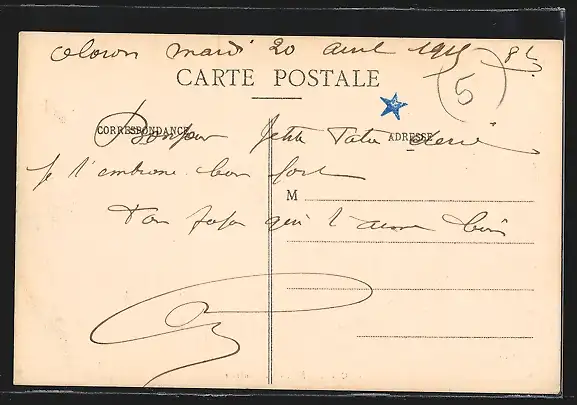 Oloron mardi 20 avril 1915 8h
5
CARTE POSTALE
CORRESPONDANCE
ADRESSE
Bonjour Petite Tata
je t'embrasse bien fort
M
Ton papa qui t'aime bien